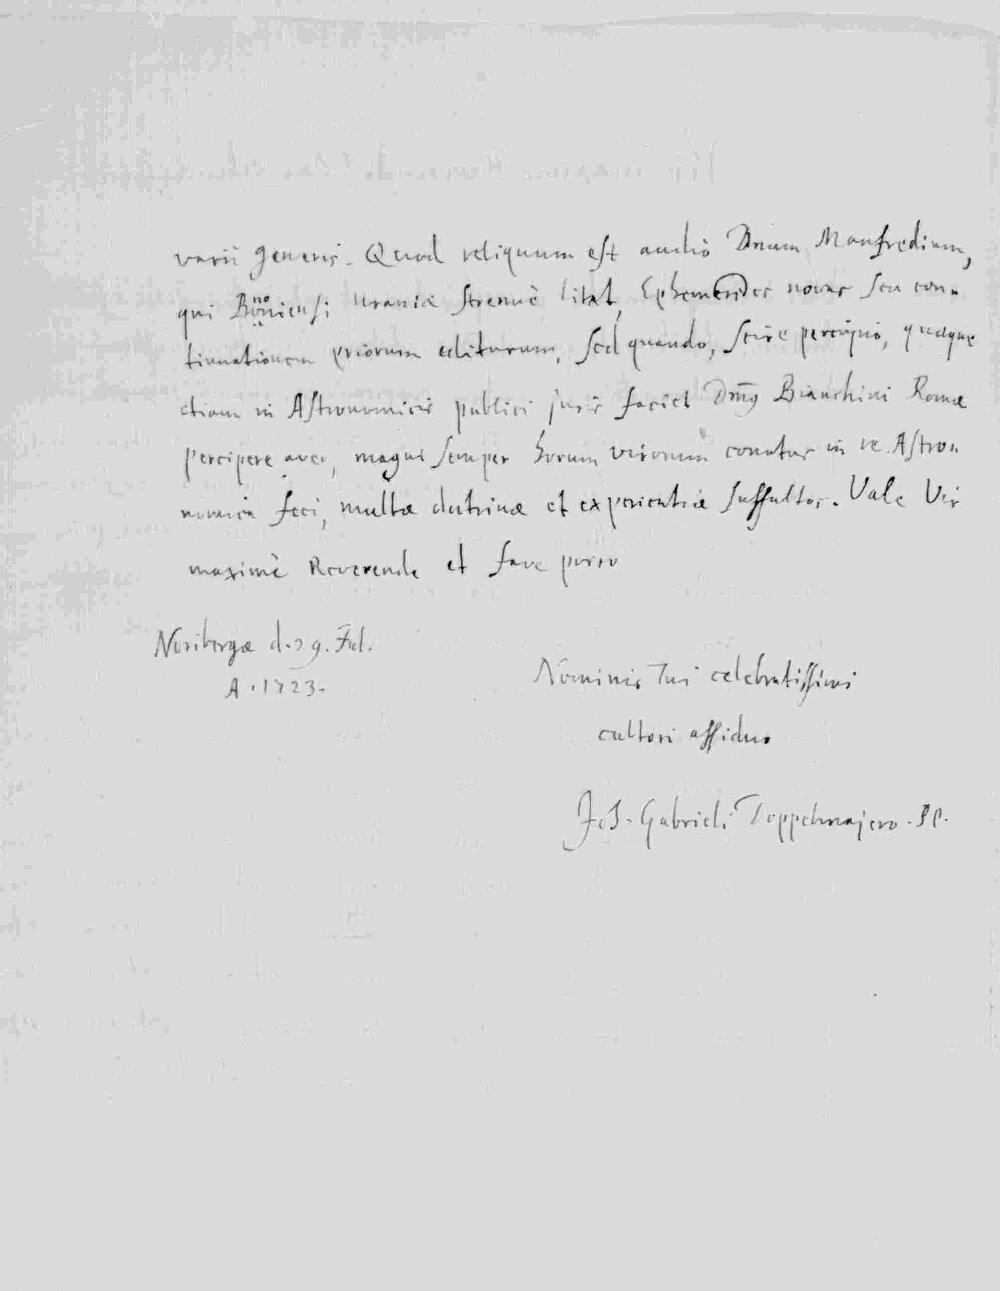 varii generis. Quod reliquum est audio Dnum Manfredium,
qui Bononiensi Uraniæ strenuè litat, Ephemerides novas seu con-
tinuationem priorum editurum, sed quando, scire percupio, quæque
etiam in Astronomicis publici juris faciet Dmg Bianchini Romæ
percipere aveo, magni semper horum virorum conatus in re Astro-
nomica feci, multæ doctrinæ et experientiæ suffultos. Vale Vir
maximè Reverende et fave porro
Noribergæ d. 29. Jul.
A. 1723.
Nominis Tui celebratissimi
cultori assiduo
Joh. Gabrieli Doppelmajero.